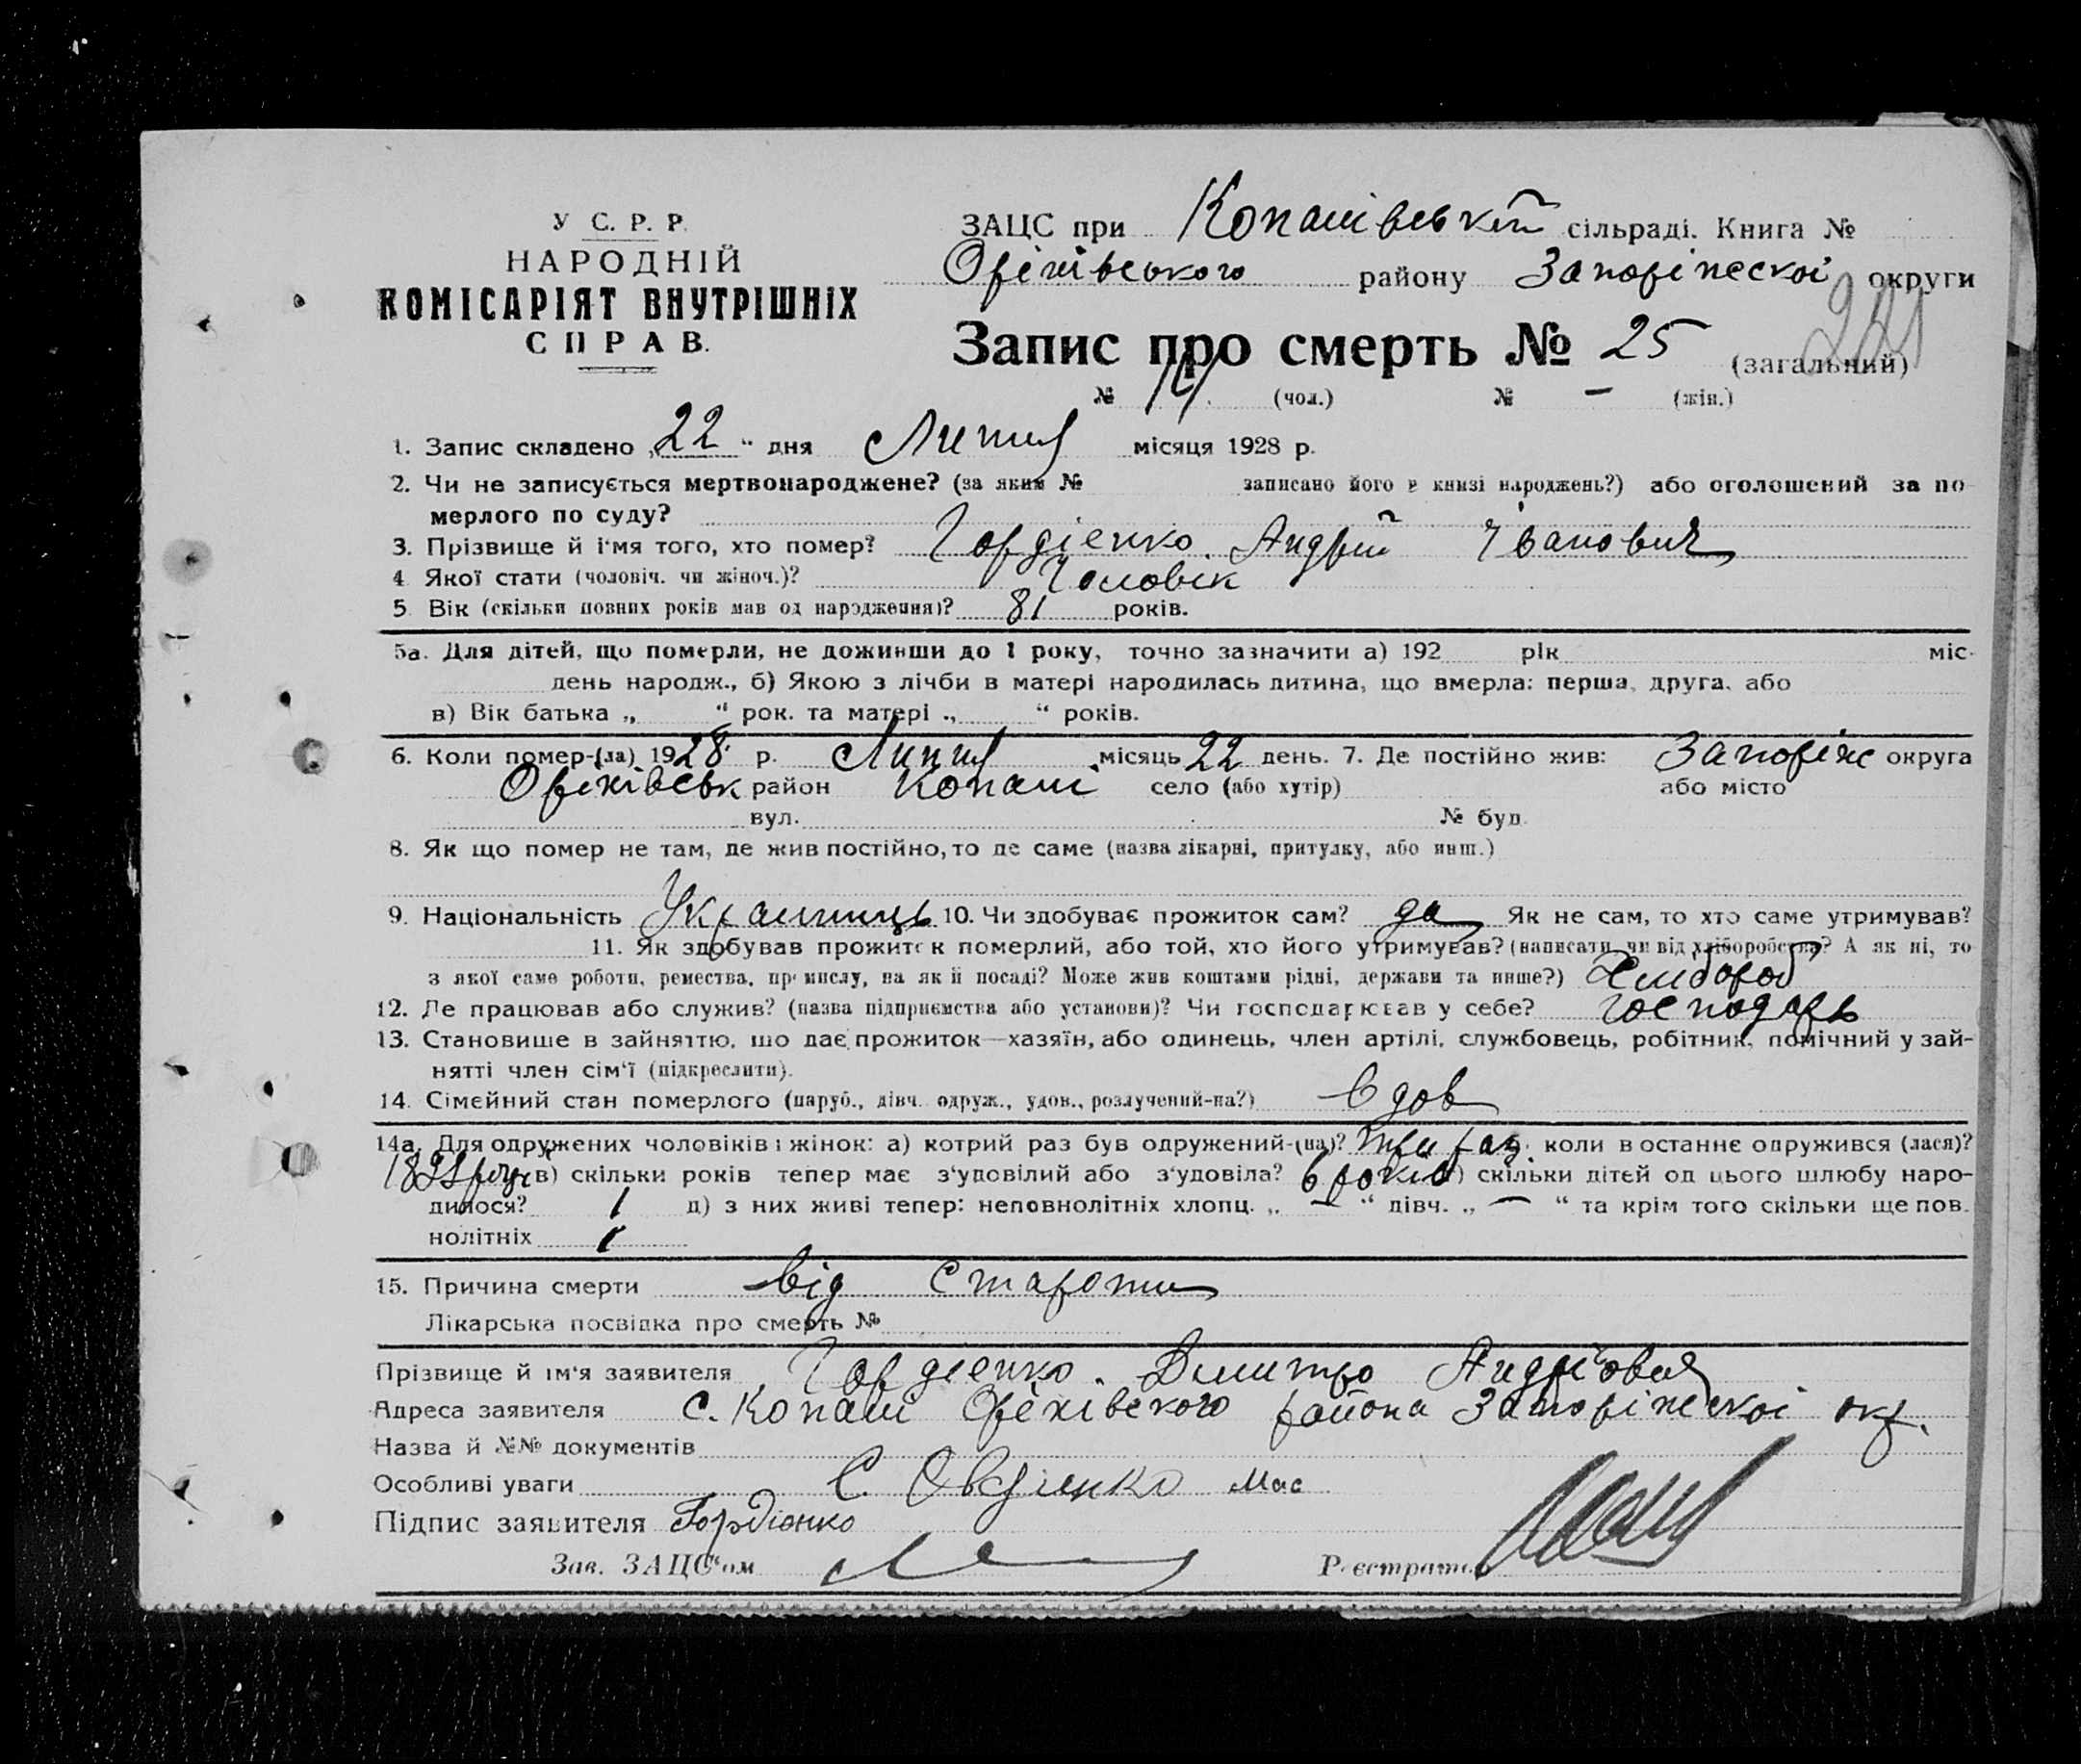 У С. Р. Р.
НАРОДНІЙ
КОМІСАРІЯТ ВНУТРІШНІХ
СПРАВ.
ЗАЦС при Копанівській сільраді. Книга №
Оріхівського району Запоріжескої округи
Запис про смерть № 25 (загальний)
№ 14 (чол.) № — (жін.)
1. Запис складено „22“ дня Липня місяця 1928 р.
2. Чи не записується мертвонароджене? (за яким № записано його в книзі народжень?) або оголошений за по-
мерлого по суду?
3. Прізвище й ім'я того, хто помер? Гордіенко. Андрій Іванович
4. Якої стати (чоловіч. чи жіноч.)? Чоловік
5. Вік (скільки повних років мав од народження)? 81 років.
5а. Для дітей, що померли, не доживши до 1 року, точно зазначити а) 192 рік міс.
день народж., б) Якою з лічби в матері народилась дитина, що вмерла: перша, друга, або
в) Вік батька „ “ рок. та матері „ “ років.
6. Коли помер-(ла) 1928 р. Липня місяць 22 день. 7. Де постійно жив: Запоріж округа
Оріхівськ район Копані село (або хутір) або місто
вул. № буд.
8. Як що помер не там, де жив постійно, то де саме (назва лікарні, притулку, або инш.)
9. Національність Українець 10. Чи здобуває прожиток сам? да Як не сам, то хто саме утримував?
11. Як здобував прожиток померлий, або той, хто його утримував? (написати, чи від хліборобства? А як ні, то
з якої саме роботи, ремества, промислу, на якій посаді? Може жив коштами рідні, держави та инше?) Хлібороб
12. Де працював або служив? (назва підприємства або установи)? Чи господарював у себе? господарь
13. Становище в зайняттю, що дає прожиток—хазяїн, або одинець, член артілі, службовець, робітник, помічний у зай-
нятті член сім'ї (підкреслити).
14. Сімейний стан померлого (паруб., дівч. одруж., удов., розлучений-на?) вдов
14а. Для одружених чоловіків і жінок: а) котрий раз був одружений-(на)? три раз. коли в останнє одружився (лася)?
в) скільки років тепер має з'удовілий або з'удовіла? 6 років ) скільки дітей од цього шлюбу наро-
дилося? 1 д) з них живі тепер: неповнолітніх хлопц. „ — “ дівч. „ — “ та крім того скільки ще пов.
нолітніх 1
15. Причина смерти від Старости
Лікарська посвідка про смерть №
Прізвище й ім'я заявителя Гордіенко. Дмитро Андрійович
Адреса заявителя с. Копані Оріхівского района Запоріжескої окр.
Назва й №№ документів
Особливі уваги С. Овдіенко
Підпис заявителя Гордіенко
Зав. ЗАЦС'ом Реєстрат